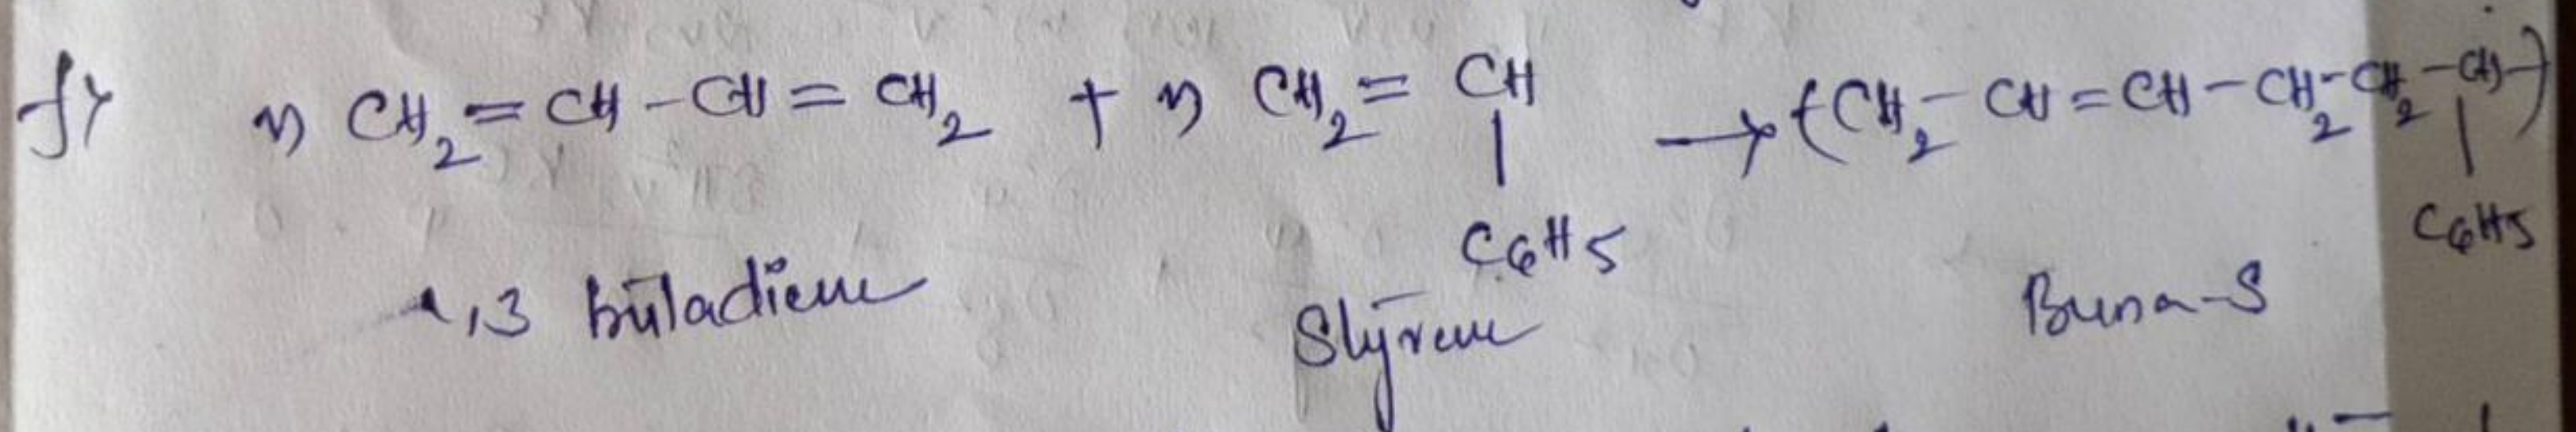 f) n CH2 = CH - CH = CH2 + n CH2 = CH → (CH2 - CH = CH - CH2 - CH2 - CH)
|
|
C6H5
C6H5
1,3 butadiene
Styrene
Buna-S